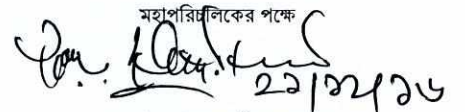 মহাপরিচালকের পক্ষে
২২/১২/১৬